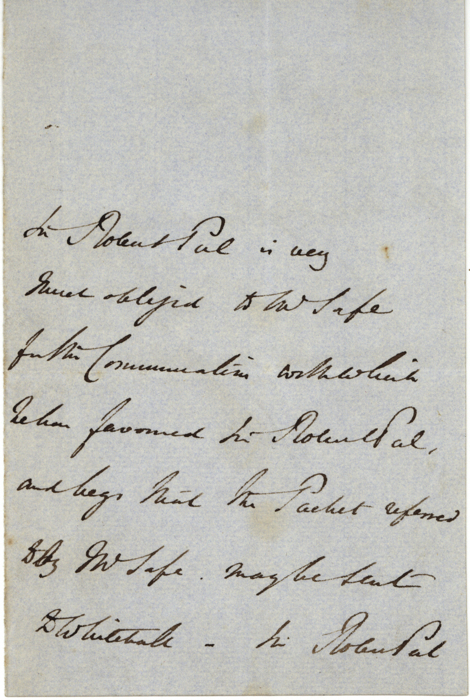 Sir Robert Peel is very
much obliged to Mr Safe
for the Communication with which
he has favoured Sir Robert Peel,
and begs that the Packet referred
to by Mr Safe. may be sent
to Whitehall - Sir Robert Peel